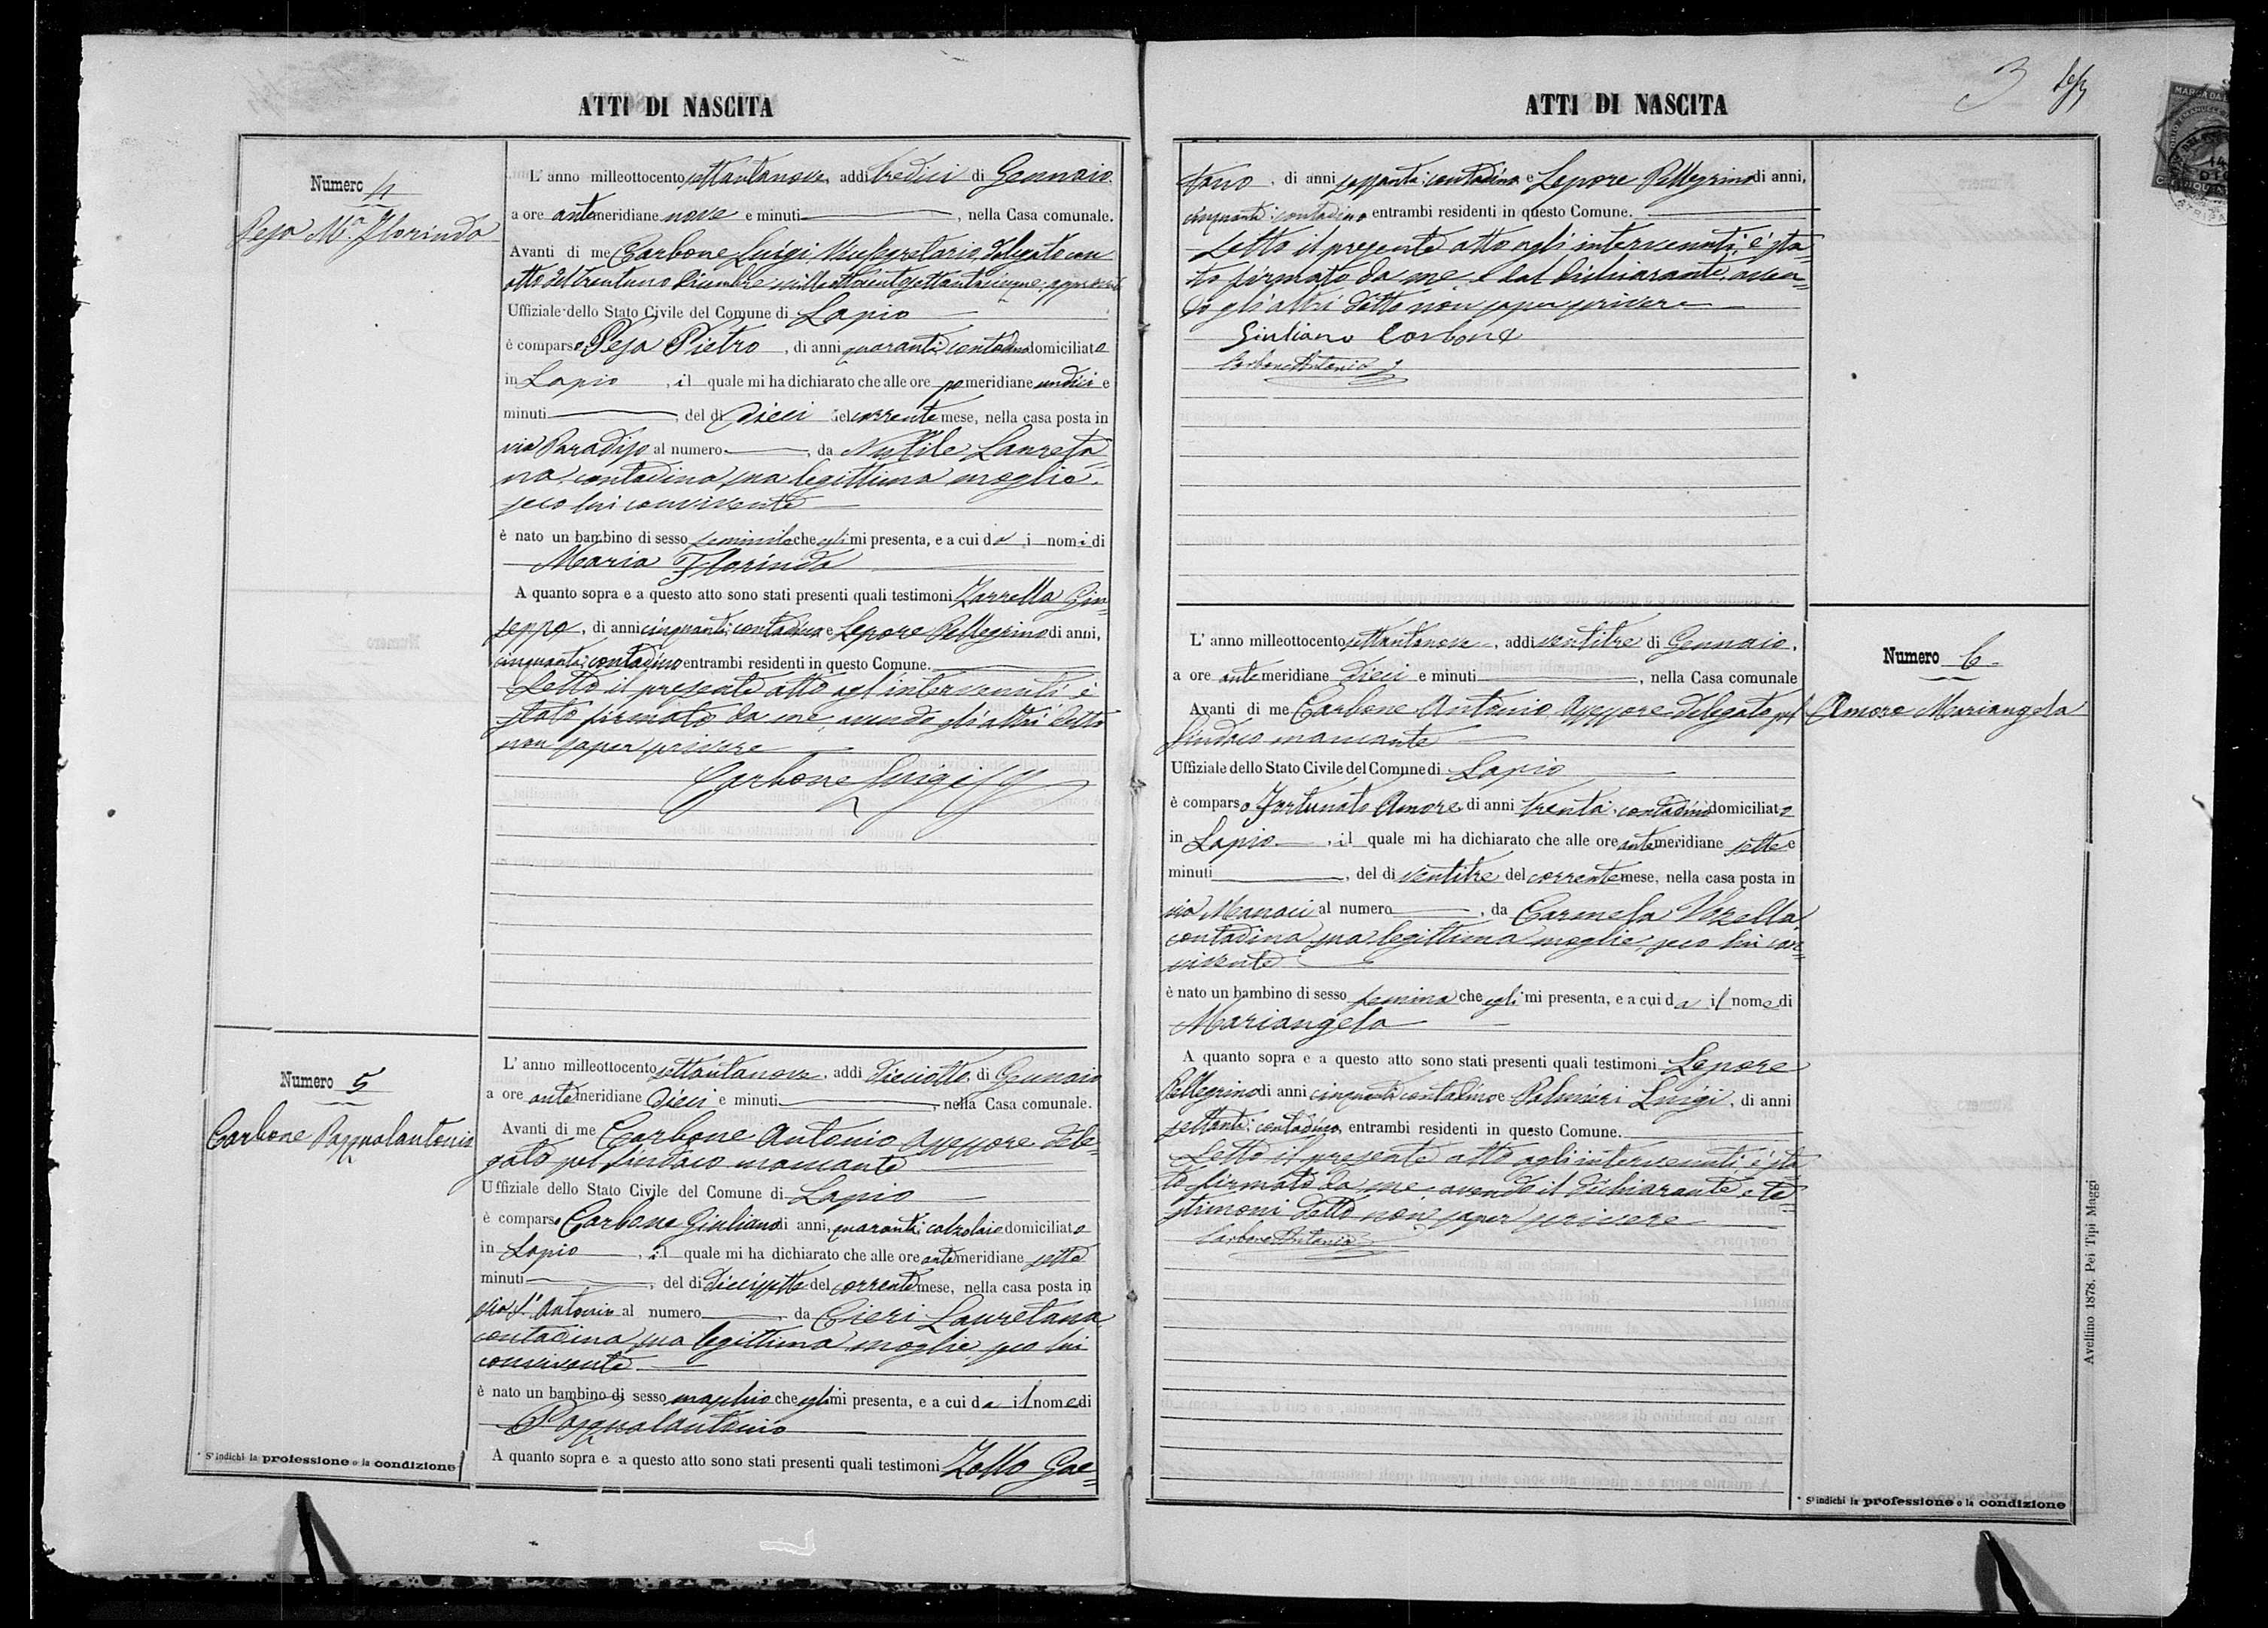 ATTI DI NASCITA
Numero 4
Pesa M.a Florinda
L' anno milleottocento settantanove, addi tredici di Gennaio,
a ore antemeridiane nove e minuti , nella Casa comunale.
Avanti di me Carbone Luigi Segretario, delegato con
atto del trentuno Dicembre milleottocentosettantacinque,
Uffiziale dello Stato Civile del Comune di Lapio
è comparso Pesa Pietro, di anni quaranta contadino domiciliato
in Lapio, il quale mi ha dichiarato che alle ore pomeridiane undici e
minuti , del dì dieci del corrente mese, nella casa posta in
via Paradiso al numero , da Laureta-
na, contadina, sua legittima moglie,
seco lui convivente
è nato un bambino di sesso feminile che egli mi presenta, e a cui da i nomi di
Maria Florinda
A quanto sopra e a questo atto sono stati presenti quali testimoni Zarrella Giu-
seppe, di anni cinquanta, contadino e Lepore Pellegrino di anni,
cinquanta, contadino entrambi residenti in questo Comune.
Letto il presente atto agl'intervenuti, è
stato firmato da me, avendo gli altri detto
non saper scrivere
Carbone Luigi
Numero 5
Carbone Pasqualantonio
L' anno milleottocento settantanove, addi dieciotto, di Gennaio
a ore antemeridiane dieci e minuti , nella Casa comunale.
Avanti di me Carbone Antonio Assessore dele-
gato pel Sindaco mancante
Uffiziale dello Stato Civile del Comune di Lapio
è comparso Carbone Giuliano di anni, quaranta, calzolaio domiciliato
in Lapio, il quale mi ha dichiarato che alle ore antemeridiane sette
minuti , del dì diecisette del corrente mese, nella casa posta in
via S. Antonio al numero , da Cieri Lauretana,
contadina, sua legittima moglie, seco lui
convivente
è nato un bambino di sesso maschio che egli mi presenta, e a cui da il nome di
Pasqualantonio
A quanto sopra e a questo atto sono stati presenti quali testimoni Zollo Gae-
* S' indichi la professione o la condizione
ATTI DI NASCITA
3
tano, di anni sessanta, contadino e Lepore Pellegrino di anni,
cinquanta, contadino entrambi residenti in questo Comune.
Letto il presente atto agli intervenuti, è sta-
to firmato da me e dal dichiarante, aven-
do gli altri detto non saper scrivere
Giuliano Carbone
Carbone Antonio
L' anno milleottocento settantanove, addi ventitre di Gennaio,
a ore antemeridiane dieci e minuti , nella Casa comunale
Avanti di me Carbone Antonio Assessore delegato pel
Sindaco mancante
Uffiziale dello Stato Civile del Comune di Lapio
è comparso Fortunato Amore, di anni trenta, contadino domiciliato
in Lapio, il quale mi ha dichiarato che alle ore antemeridiane sette e
minuti , del dì ventitre del corrente mese, nella casa posta in
via al numero , da Carmela
contadina sua legittima moglie, seco lui con-
vivente
è nato un bambino di sesso femina che egli mi presenta, e a cui da il nome di
Mariangela
A quanto sopra e a questo atto sono stati presenti quali testimoni Lepore
Pellegrino di anni cinquanta contadino e Palmieri Luigi, di anni
settanta, contadino entrambi residenti in questo Comune.
Letto il presente atto agli intervenuti, è sta-
to firmato da me, avendo il dichiarante e te-
stimoni detto non saper scrivere
Carbone Antonio
Numero 6.
Amore Mariangela
* S' indichi la professione o la condizione
Avellino 1878. Pei Tipi Maggi